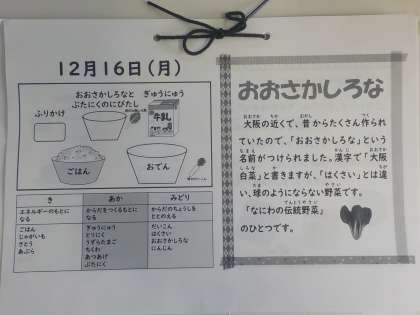 12月16日(月)
おおさかしろなと
ぶたにくのにびたし
ぎゅうにゅう
ふりかけ
牛乳
ごはん
おでん
き
あか
みどり
エネルギーのもとに
なる
からだをつくるもとに
なる
からだのちょうしを
ととのえる
ごはん
じゃがいも
さとう
あぶら
ぎゅうにゅう
とりにく
うずらたまご
ちくわ
あつあげ
ぶたにく
だいこん
はくさい
おおさかしろな
にんじん
おおさかしろな
大阪の近くで、昔からたくさん作られ
ていたので、「おおさかしろな」という
名前がつけられました。漢字で「大阪
白菜」と書きますが、「はくさい」とは違
い、球のようにならない野菜です。
「なにわの伝統野菜」
のひとつです。